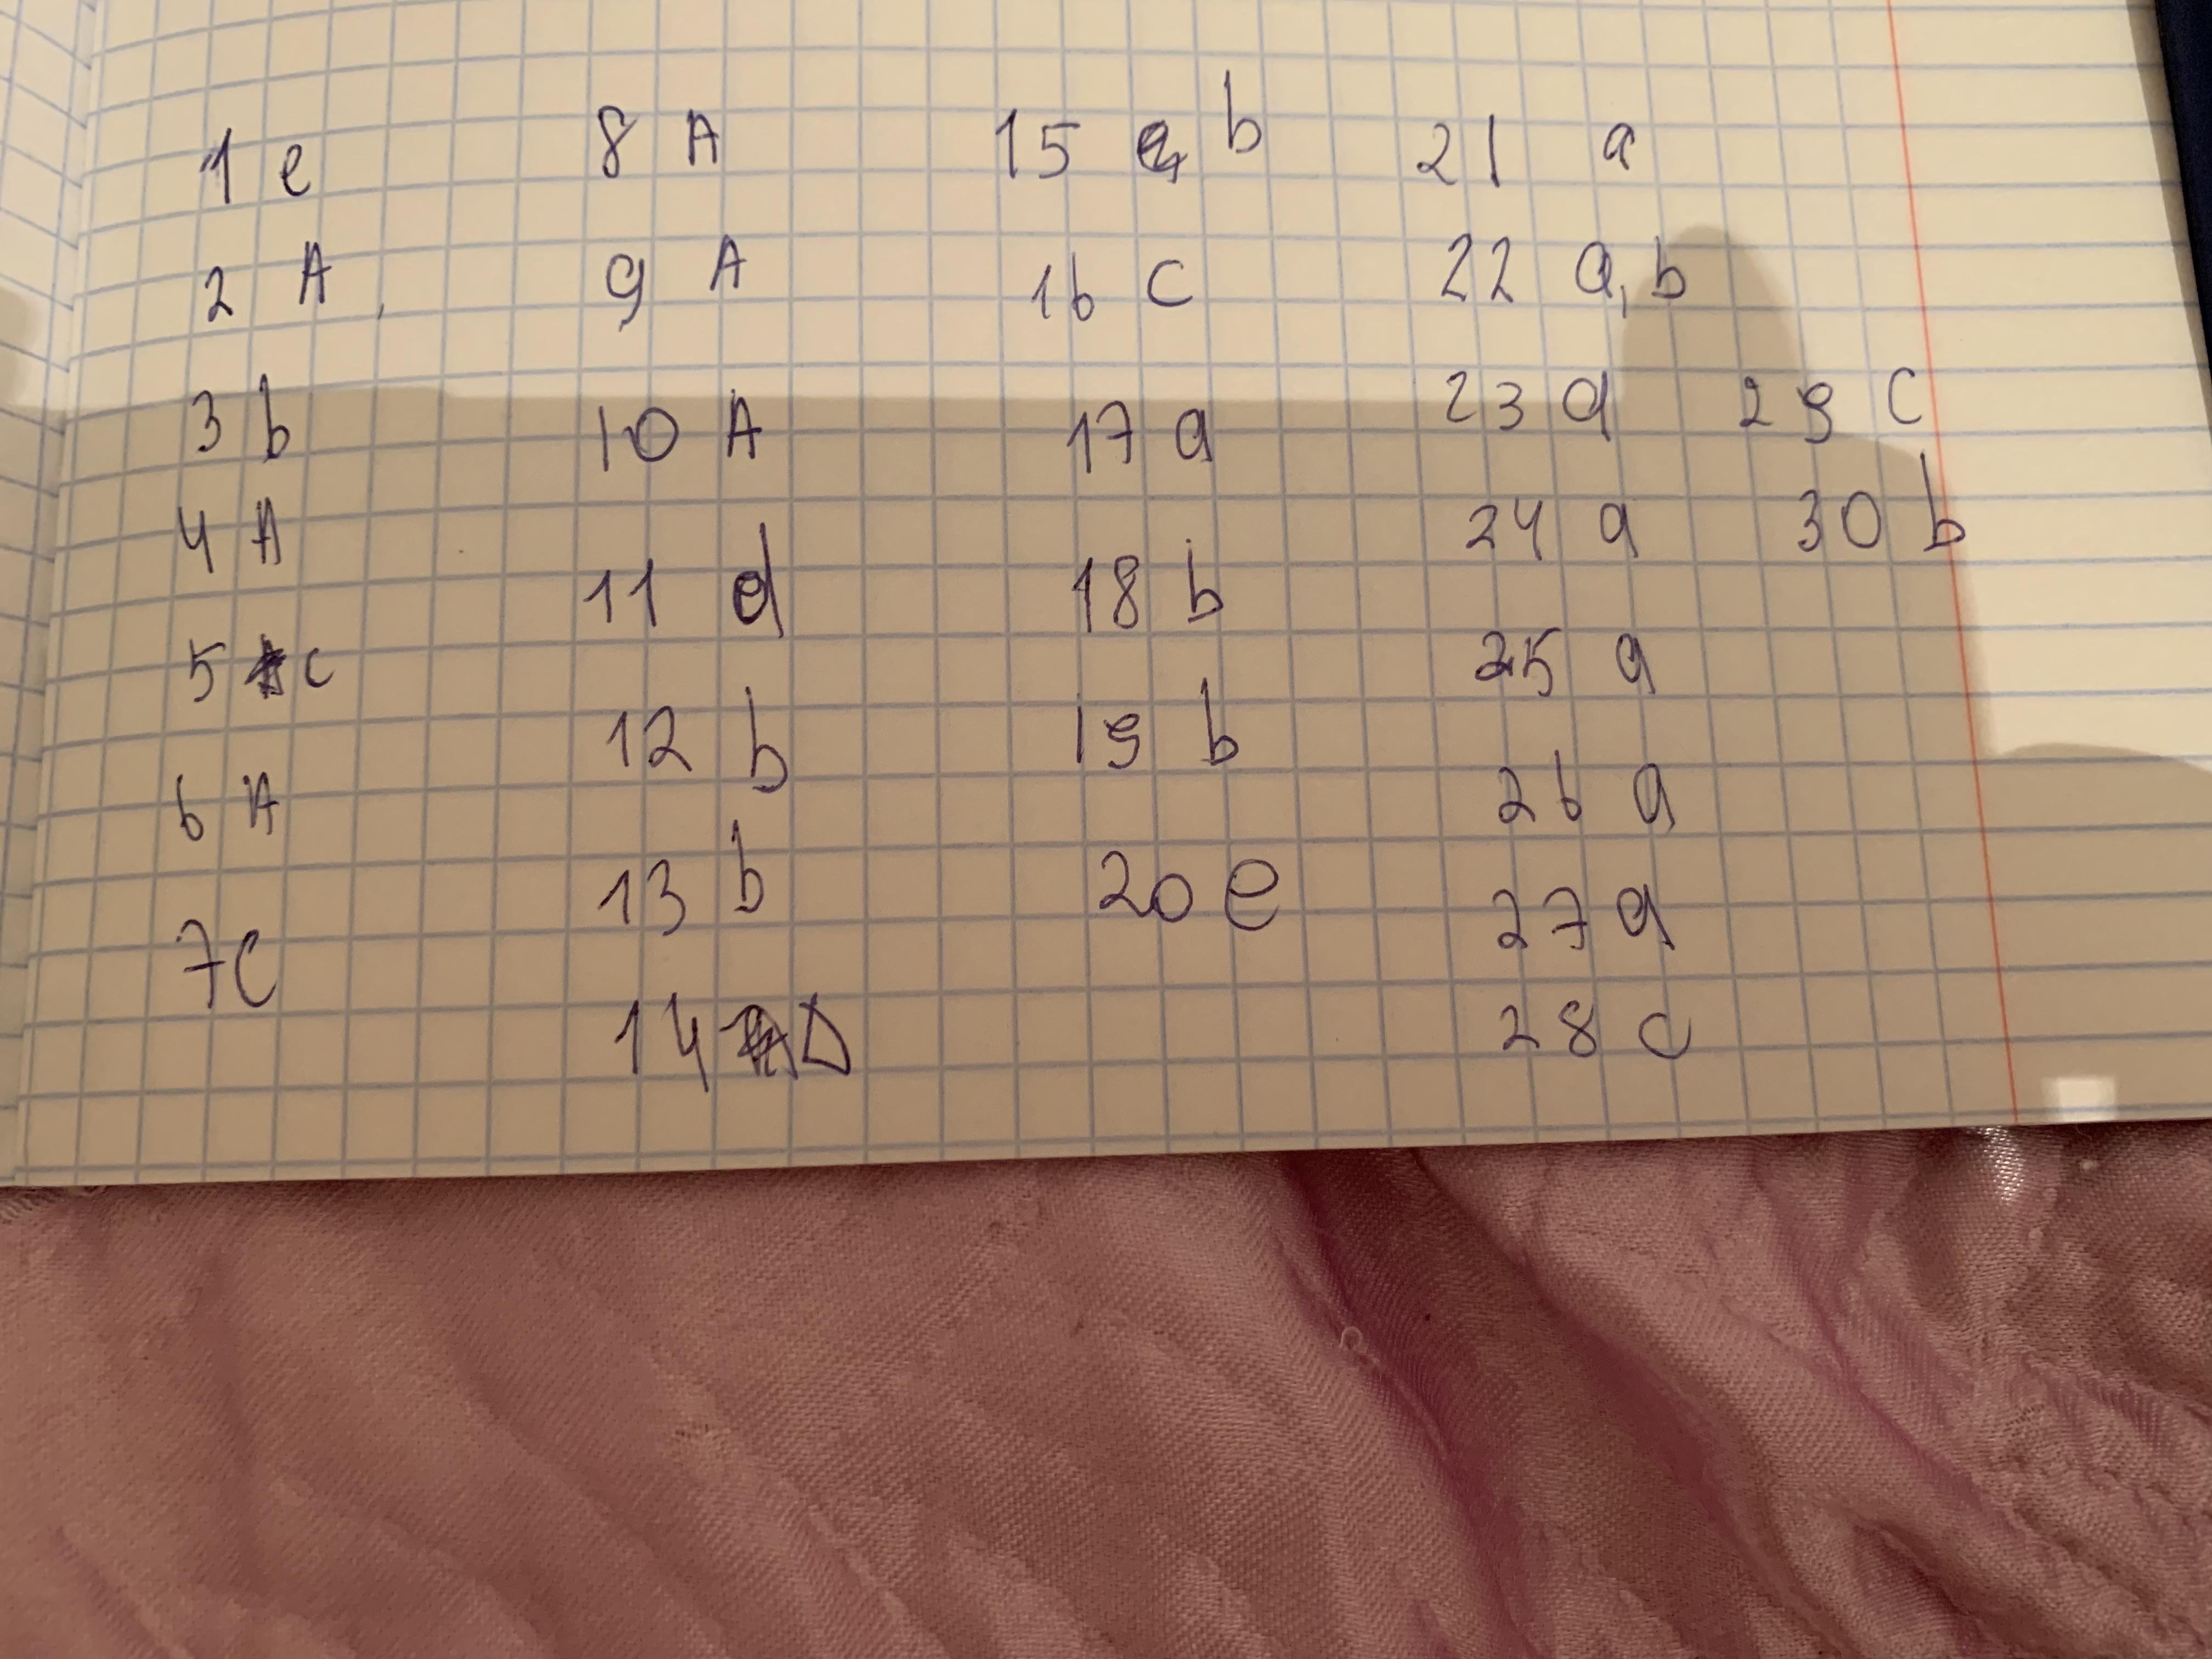 1 e
2 A
3 b
4 A
5 c
6 A
7 C
8 A
9 A
10 A
11 d
12 b
13 b
14 D
15 b
16 C
17 a
18 b
19 b
20 e
21 a
22 a, b
23 a
24 a
25 a
26 a
27 a
28 c
29 C
30 b